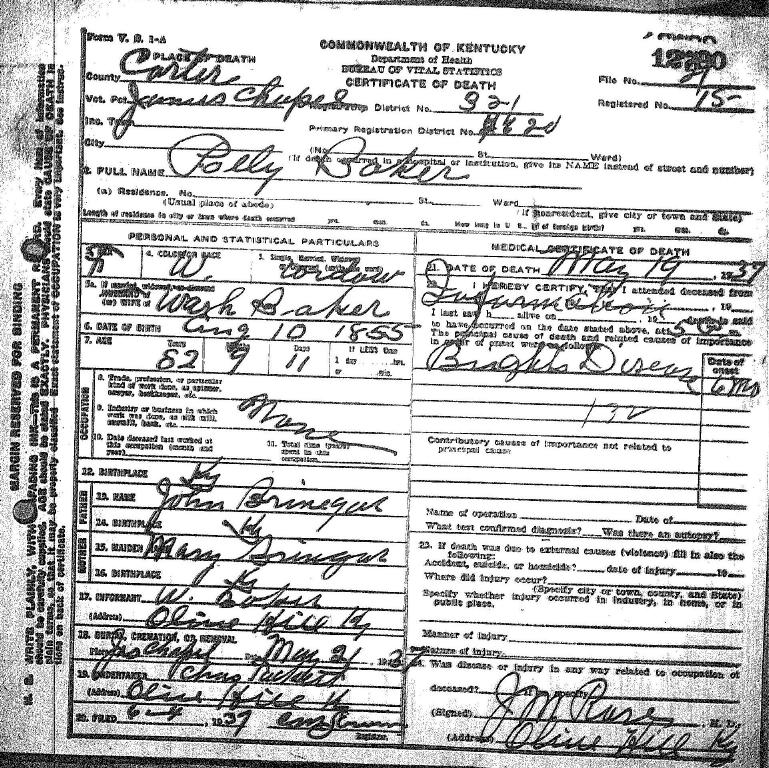 Form V. S. 1-A
COMMONWEALTH OF KENTUCKY
Department of Health
BUREAU OF VITAL STATISTICS
CERTIFICATE OF DEATH
File No. 21
Registered No. 15
1. PLACE OF DEATH
County Carter
Vot. Pct. James Chapel Registration District No. 321
Inc. Town
Primary Registration District No.
City (No. St. Ward)
(If death occurred in a hospital or institution, give its NAME instead of street and number)
2. FULL NAME Polly Baker
(a) Residence. No. St. Ward
(Usual place of abode) (If nonresident, give city or town and State)
Length of residence in city or town where death occurred yrs. mos. ds. How long in U. S., if of foreign birth? yrs. mos. ds.
PERSONAL AND STATISTICAL PARTICULARS
4. COLOR OR RACE W.
5. Single, Married, Widowed Widow
5a. If married, widowed, or divorced
HUSBAND of
(or) WIFE of Wash Baker
6. DATE OF BIRTH Aug 10 1855
7. AGE Years Months Days If LESS than
82 9 11 1 day hrs.
or min.
OCCUPATION
8. Trade, profession, or particular
kind of work done, as spinner,
sawyer, bookkeeper, etc.
9. Industry or business in which
work was done, as silk mill,
sawmill, bank, etc.
None
10. Date deceased last worked at
this occupation (month and
year)
11. Total time (years)
spent in this
occupation
12. BIRTHPLACE Ky
FATHER
13. NAME John Brinegar
14. BIRTHPLACE Ky
MOTHER
15. MAIDEN Mary Brinegar
16. BIRTHPLACE Ky
17. INFORMANT W. Baker
(Address) Olive Hill Ky
18. BURIAL, CREMATION, OR REMOVAL
Place Jas Chapel Date May 21 1937
19. UNDERTAKER Chas
(Address) Olive Hill K
20. FILED 6-4, 1937
Registrar.
MEDICAL CERTIFICATE OF DEATH
21. DATE OF DEATH May 19, 1937
22. I HEREBY CERTIFY, That I attended deceased from
Information, 19
I last saw h alive on, 19, death is said
to have occurred on the date stated above, at 5
The principal cause of death and related causes of importance
in order of onset were as follows: Date of onset
Brights Disease 6 Mo
132
Contributory causes of importance not related to
principal cause
Name of operation Date of
What test confirmed diagnosis? Was there an autopsy?
23. If death was due to external causes (violence) fill in also the
following:
Accident, suicide, or homicide? date of injury 19
Where did injury occur?
(Specify city or town, county, and State)
Specify whether injury occurred in industry, in home, or in
public place.
Manner of injury
Nature of injury
24. Was disease or injury in any way related to occupation of
deceased? If so, specify
(Signed) J M Rose, M. D.
(Address) Olive Hill Ky
MARGIN RESERVED FOR BINDING